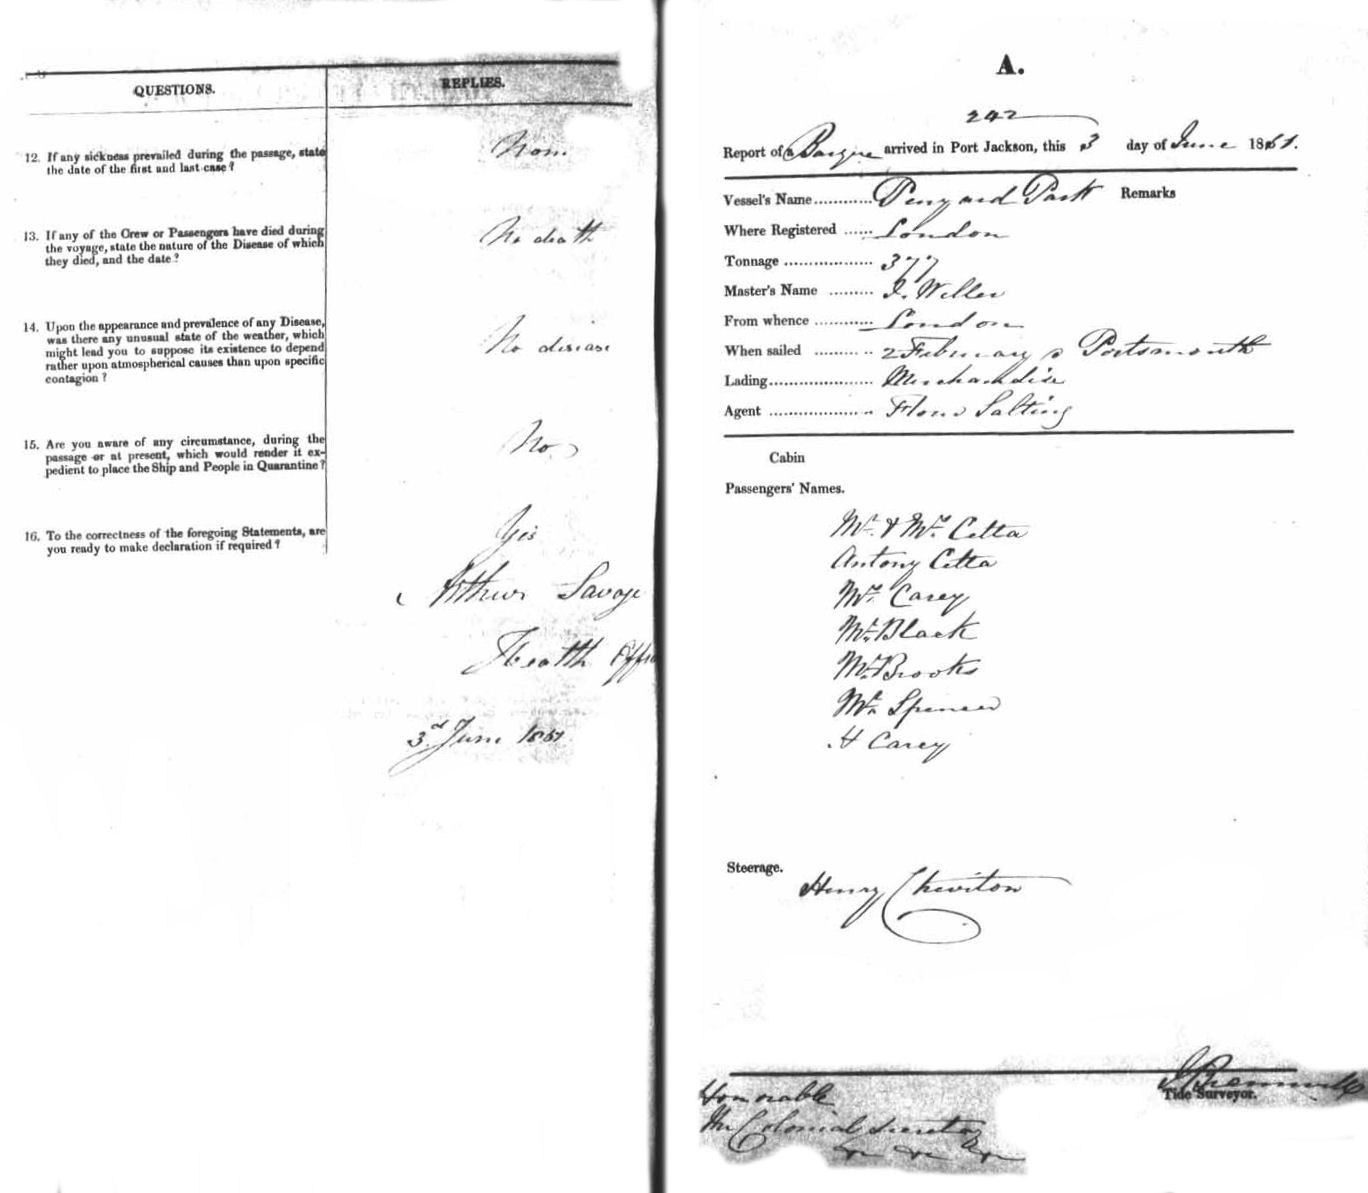 QUESTIONS.
REPLIES.
12. If any sickness prevailed during the passage, state
the date of the first and last case?
None
13. If any of the Crew or Passengers have died during
the voyage, state the nature of the Disease of which
they died, and the date?
No death
14. Upon the appearance and prevalence of any Disease,
was there any unusual state of the weather, which
might lead you to suppose its existence to depend
rather upon atmospherical causes than upon specific
contagion?
No disease
15. Are you aware of any circumstance, during the
passage or at present, which would render it ex-
pedient to place the Ship and People in Quarantine?
No
16. To the correctness of the foregoing Statements, are
you ready to make declaration if required?
Yes
Arthur Savage
Health Offi
3rd June 1851
A.
242
Report of a Barque arrived in Port Jackson, this 3 day of June 1851.
Vessel's Name Penyard Park Remarks
Where Registered London
Tonnage 377
Master's Name J. Weller
From whence London
When sailed 2 February Portsmouth
Lading Merchandise
Agent Flower Salting
Cabin
Passengers' Names.
Mr. & Mrs. Cetta
Antony Cetta
Mr. Carey
Mr. Black
Mr. Brooks
Mr. Spencer
H Carey
Steerage.
Henry Cheviton
Tide Surveyor.
Honorable
The Colonial Secretary